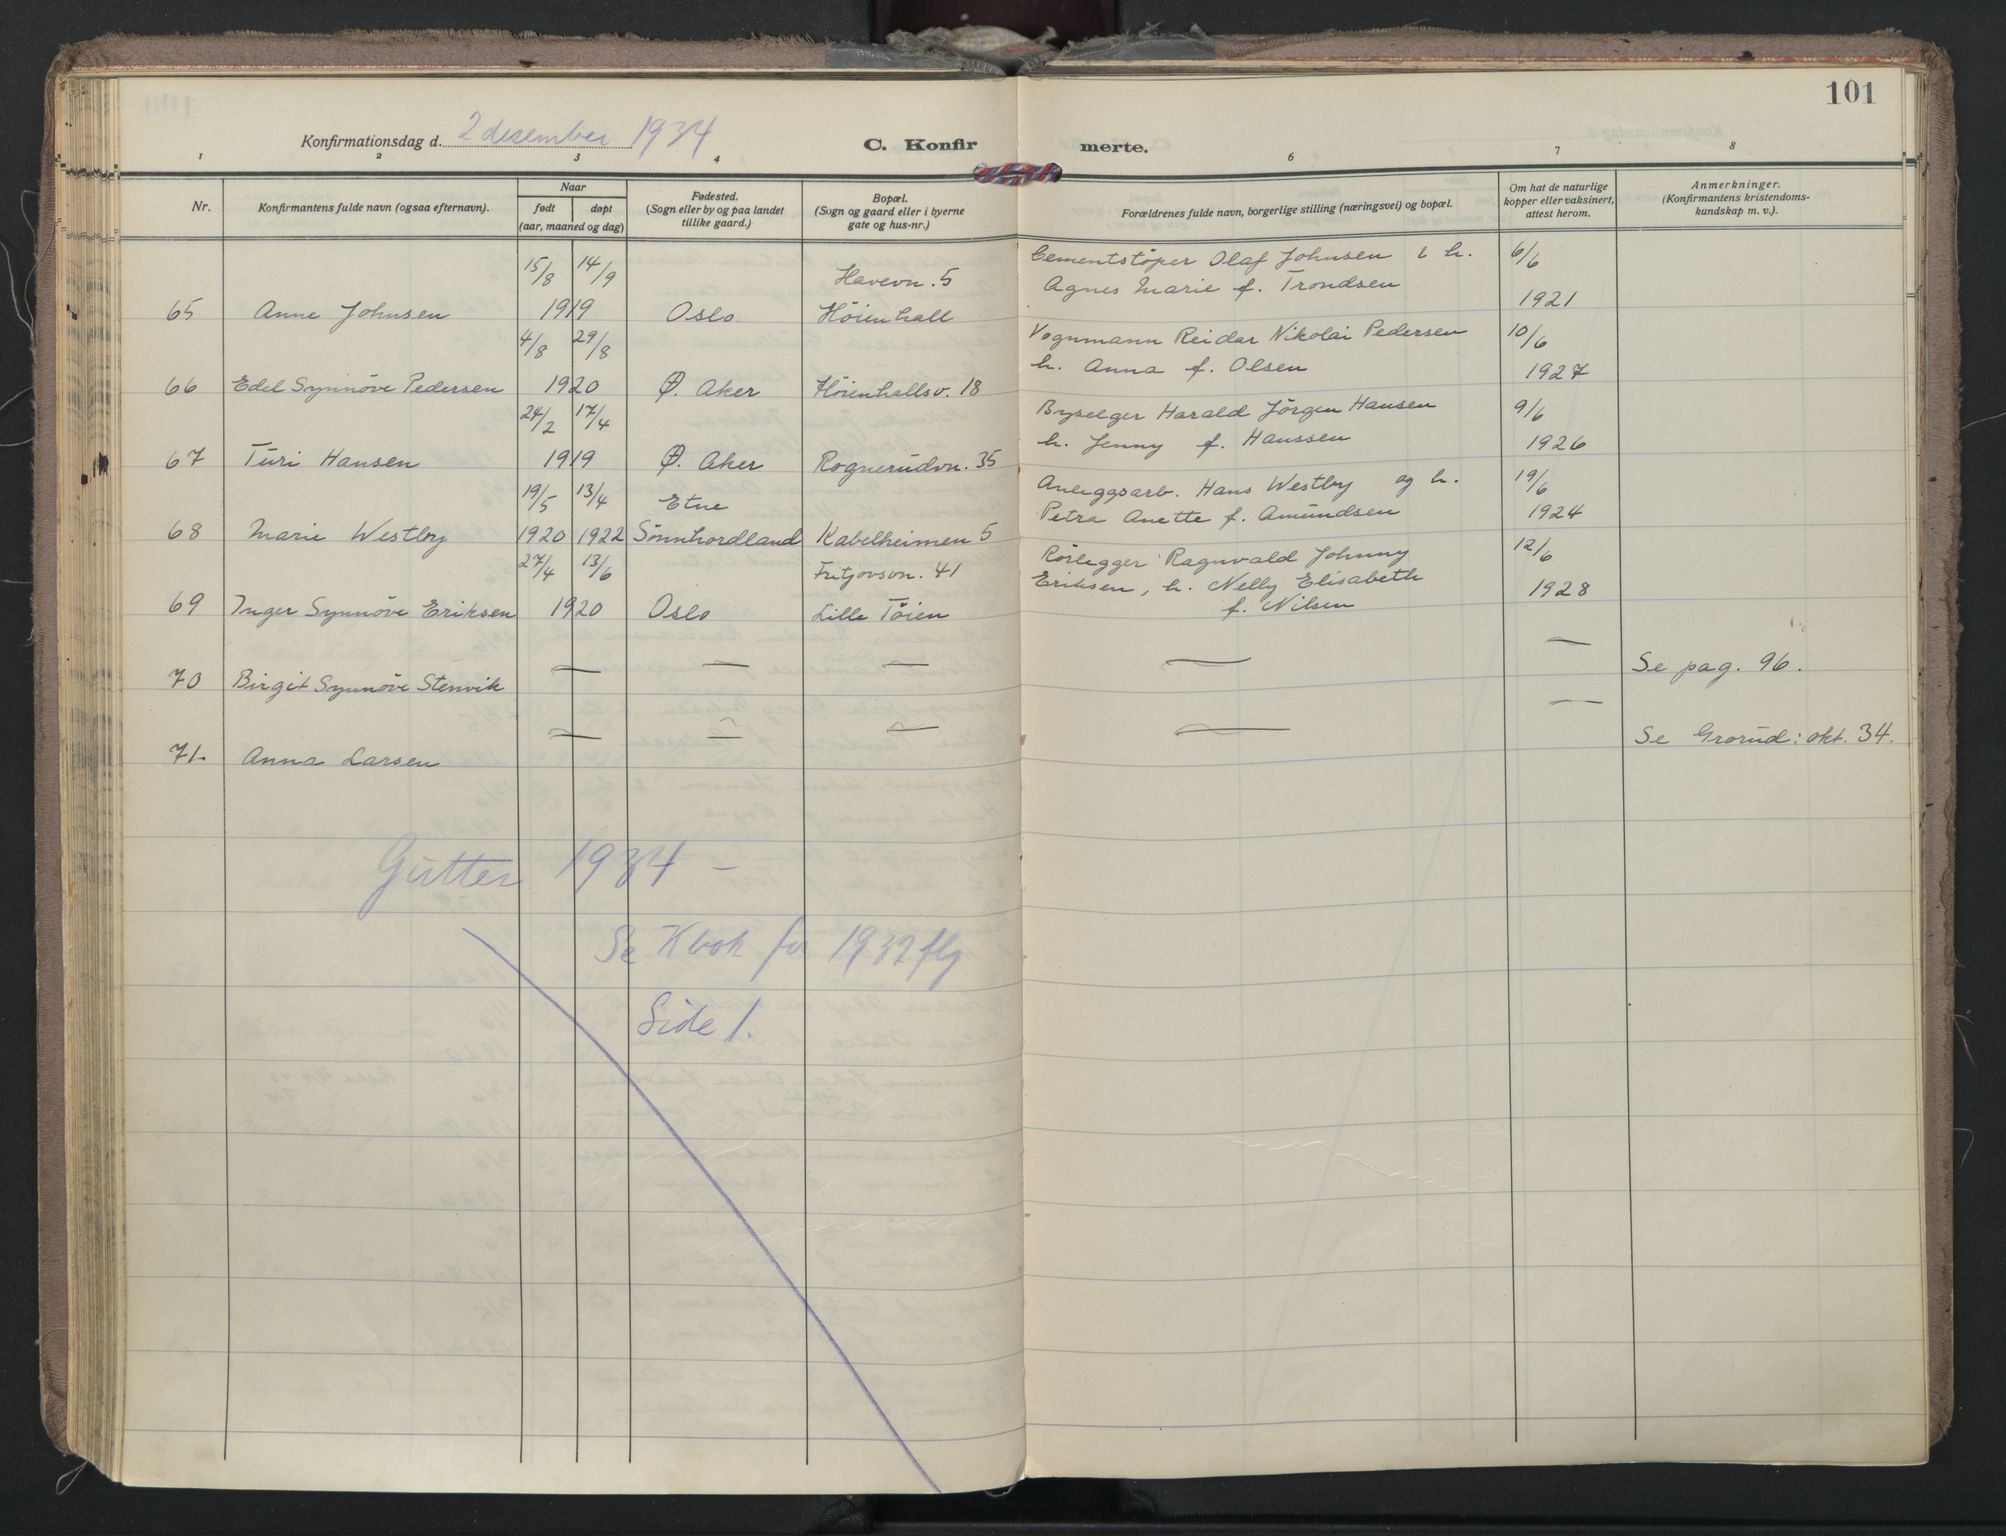 101
Konfirmationsdag d. 2 desember 1934
C. Konfirmerte.
1 2 3 4 6 7 8
Nr.
Konfirmantens fulde navn (ogsaa efternavn).
Naar
født døpt
(aar, maaned og dag)
Fødested.
(Sogn eller by og paa landet
tillike gaard.)
Bopæl.
(Sogn og gaard eller i byerne
gate og hus-nr.)
Forældrenes fulde navn, borgerlige stilling (næringsvei) og bopæl.
Om hat de naturlige
kopper eller vaksinert,
attest herom.
Anmerkninger.
(Konfirmantens kristendoms-
kundskap m. v.).
15/8 14/9 Havevn. 5 Cementstöper Olaf Johnsen & h. 6/6
65 Anne Johnsen 1919 Oslo Höienhall Agnes Marie f. Trondsen 1921
4/8 29/8 Vognmann Reidar Nikolai Pedersen 10/6
66 Edel Synnöve Pedersen 1920 Ø. Aker Höienhallsv. 18 h. Anna f. Olsen 1927
24/2 17/4 Byselger Harald Jörgen Hansen 9/6
67 Turi Hansen 1919 Ø. Aker Rognerudvn. 35 h. Jenny f. Hanssen 1926
19/5 13/4 Etne Anleggsarb. Hans Westby og h. 19/6
68 Marie Westby 1920 1922 Sönnhordland Kabelheimen 5 Petra Anette f. Amundsen 1924
27/4 13/6 Fritjovsvn. 41 Rörlegger Ragnvald Johnny 12/6
69 Inger Synnöve Eriksen 1920 Oslo Lille Töien Eriksen, h. Nelly Elisabeth 1928
f. Nilsen
70 Birgit Synnöve Stenvik — — — — — Se pag. 96.
71. Anna Larsen — — — — — Se Grorud: okt. 34.
Gutter 1934 –
Se Kbok for 1932 flg
Side 1.